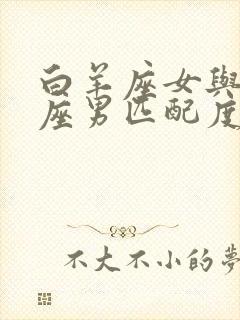 白羊座女與
座男匹配度
不大不小的夢